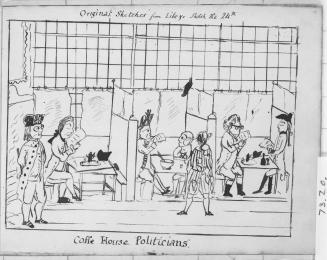 Original Sketches from Life by Sketch No. 24th
Coffe House Politicians.
73.20.